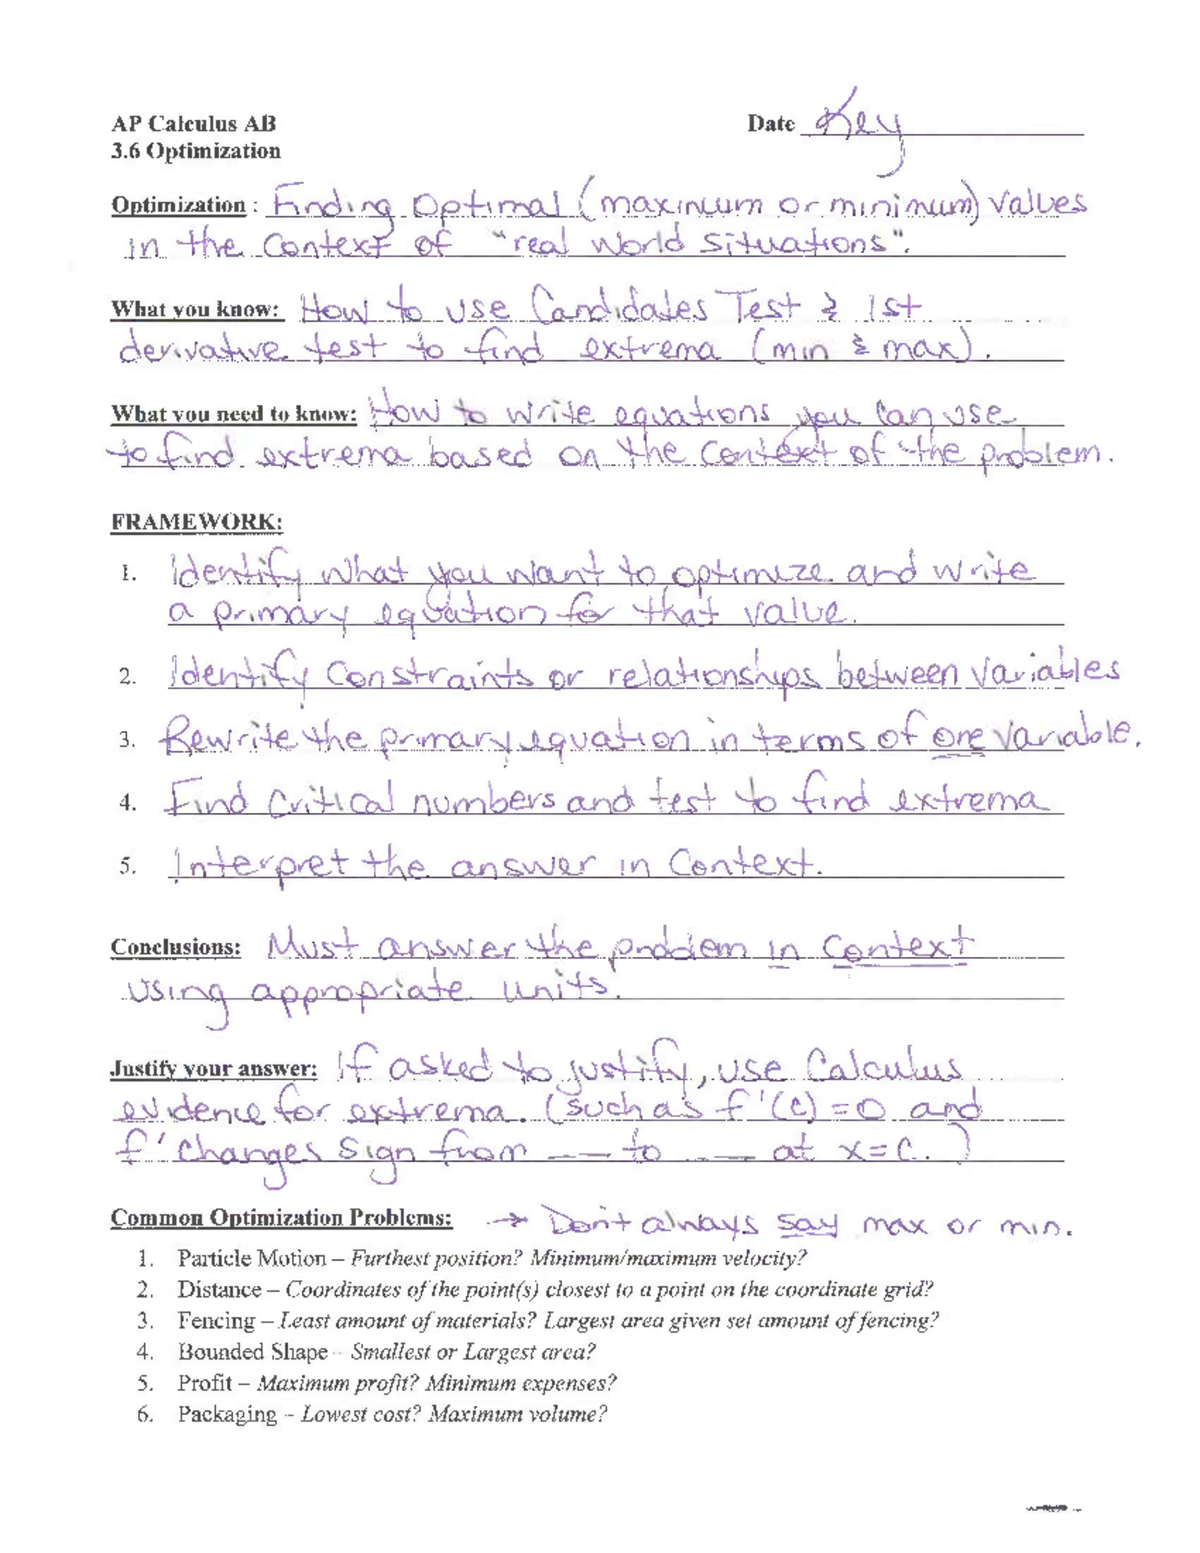 AP Calculus AB
Date Key
3.6 Optimization
Optimization : Finding Optimal (maximum or minimum) values
in the context of "real world situations".
What you know: How to use Candidates Test & 1st
derivative test to find extrema (min & max).
What you need to know: How to write equations you can use
to find extrema based on the context of the problem.
FRAMEWORK:
1. Identify what you want to optimize and write
a primary equation for that value.
2. Identify constraints or relationships between variables
3. Rewrite the primary equation in terms of one variable.
4. Find critical numbers and test to find extrema
5. Interpret the answer in context.
Conclusions: Must answer the problem in context
using appropriate units.
Justify your answer: If asked to justify, use Calculus
evidence for extrema. (such as f'(c)=0 and
f' changes sign from ___ to ___ at x=c.)
Common Optimization Problems: → Don't always say max or min.
1. Particle Motion – Furthest position? Minimum/maximum velocity?
2. Distance – Coordinates of the point(s) closest to a point on the coordinate grid?
3. Fencing – Least amount of materials? Largest area given set amount of fencing?
4. Bounded Shape – Smallest or Largest area?
5. Profit – Maximum profit? Minimum expenses?
6. Packaging – Lowest cost? Maximum volume?